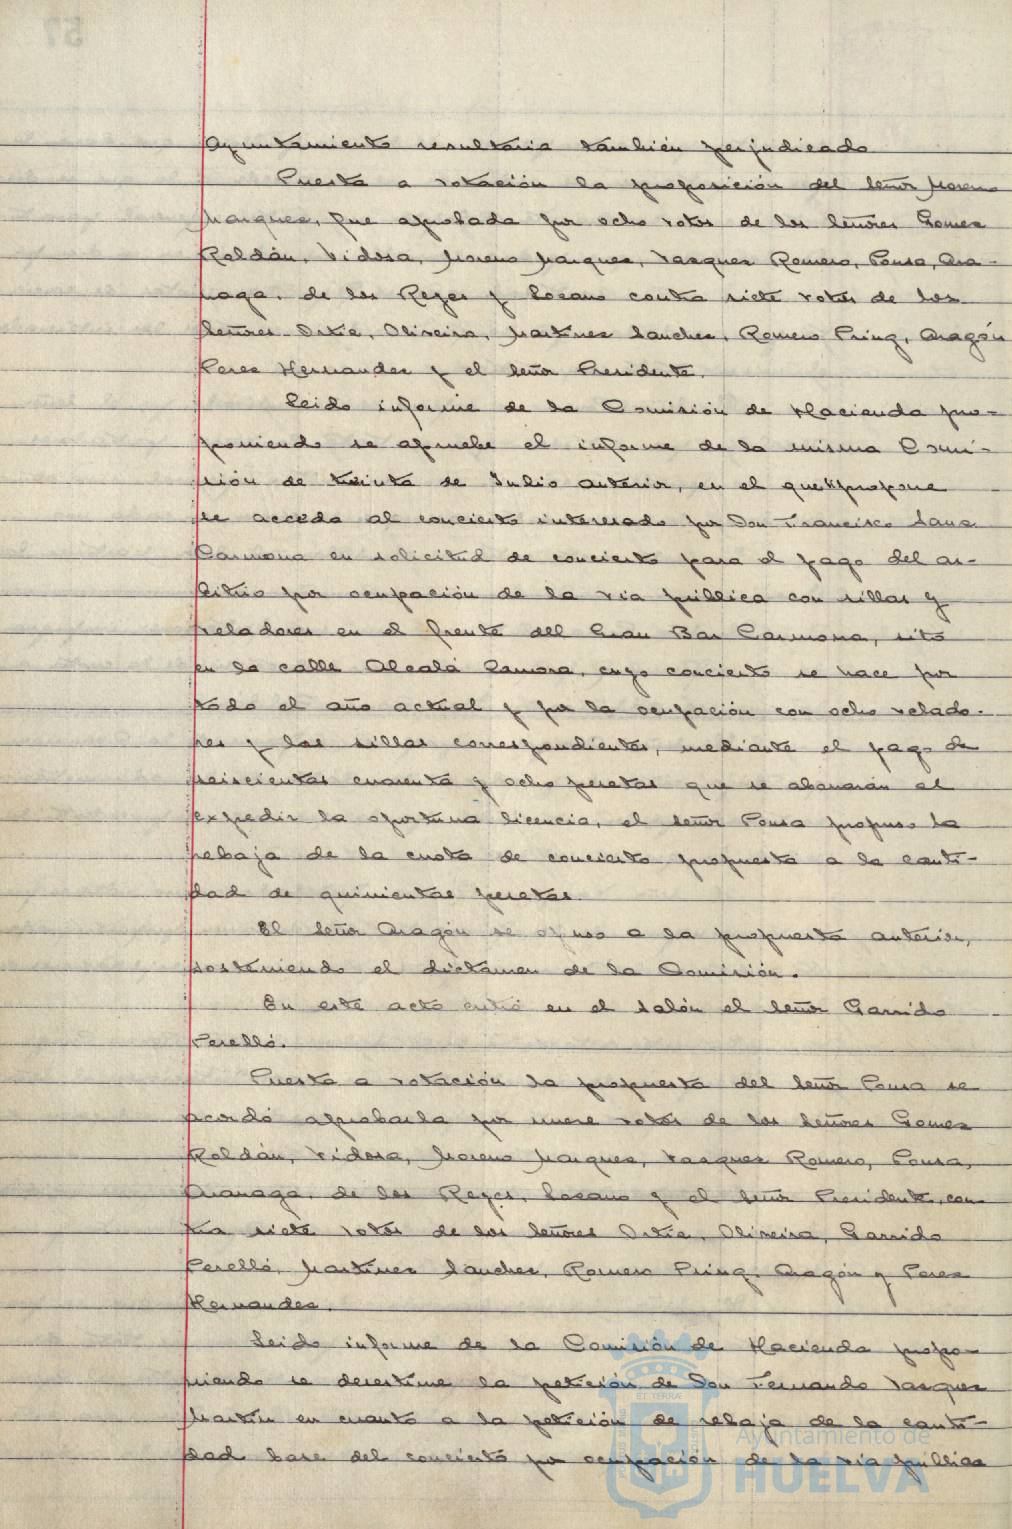 Ayuntamiento resultaria también perjudicado
Puesta a votación la proposición del Señor Moreno
Marquez, fue aprobada por ocho votos de los Señores Gomez
Roldán, Vidosa, Moreno Marquez, Vazquez Romero, Ponsa, Ara-
naga, de los Reyes y Lozano contra siete votos de los
Señores Ortiz, Oliveira, Martinez Sanchez, Romero Pring, Aragón
Perez Hernandez y el Señor Presidente.
Leido informe de la Comisión de Hacienda pro-
poniendo se apruebe el informe de la misma Comi-
sión de treinta de Julio anterior, en el que propone
se acceda al concierto interesado por Don Francisco Sanz
Carmona en solicitud de concierto para el pago del ar-
bitrio por ocupación de la via pública con sillas y
veladores en el frente del Gran Bar Carmona, sito
en la calle Alcalá Zamora, cuyo concierto se hace por
todo el año actual y por la ocupación con ocho velado-
res y las sillas correspondientes, mediante el pago de
seiscientas cuarenta y ocho pesetas que se abonarán al
expedir la oportuna licencia, el Señor Ponsa propuso la
rebaja de la cuota de concierto propuesta a la canti-
dad de quinientas pesetas.
El Señor Aragón se opuso a la propuesta anterior,
sosteniendo el dictamen de la Comisión.
En este acto entró en el salón el Señor Garrido
Perelló.
Puesta a votación la propuesta del Señor Ponsa se
acordó aprobarla por nueve votos de los Señores Gomez
Roldán, Vidosa, Moreno Marquez, Vazquez Romero, Ponsa,
Aranaga, de los Reyes, Lozano y el Señor Presidente, con
tra siete votos de los Señores Ortiz, Oliveira, Garrido
Perelló, Martinez Sanchez, Romero Pring, Aragón y Perez
Hernandez.
Leido informe de la Comisión de Hacienda propo-
niendo se desestime la petición de Don Fernando Vazquez
Martin en cuanto a la petición de rebaja de la canti-
dad base del concierto por ocupación de la via pública
Ayuntamiento de
HUELVA